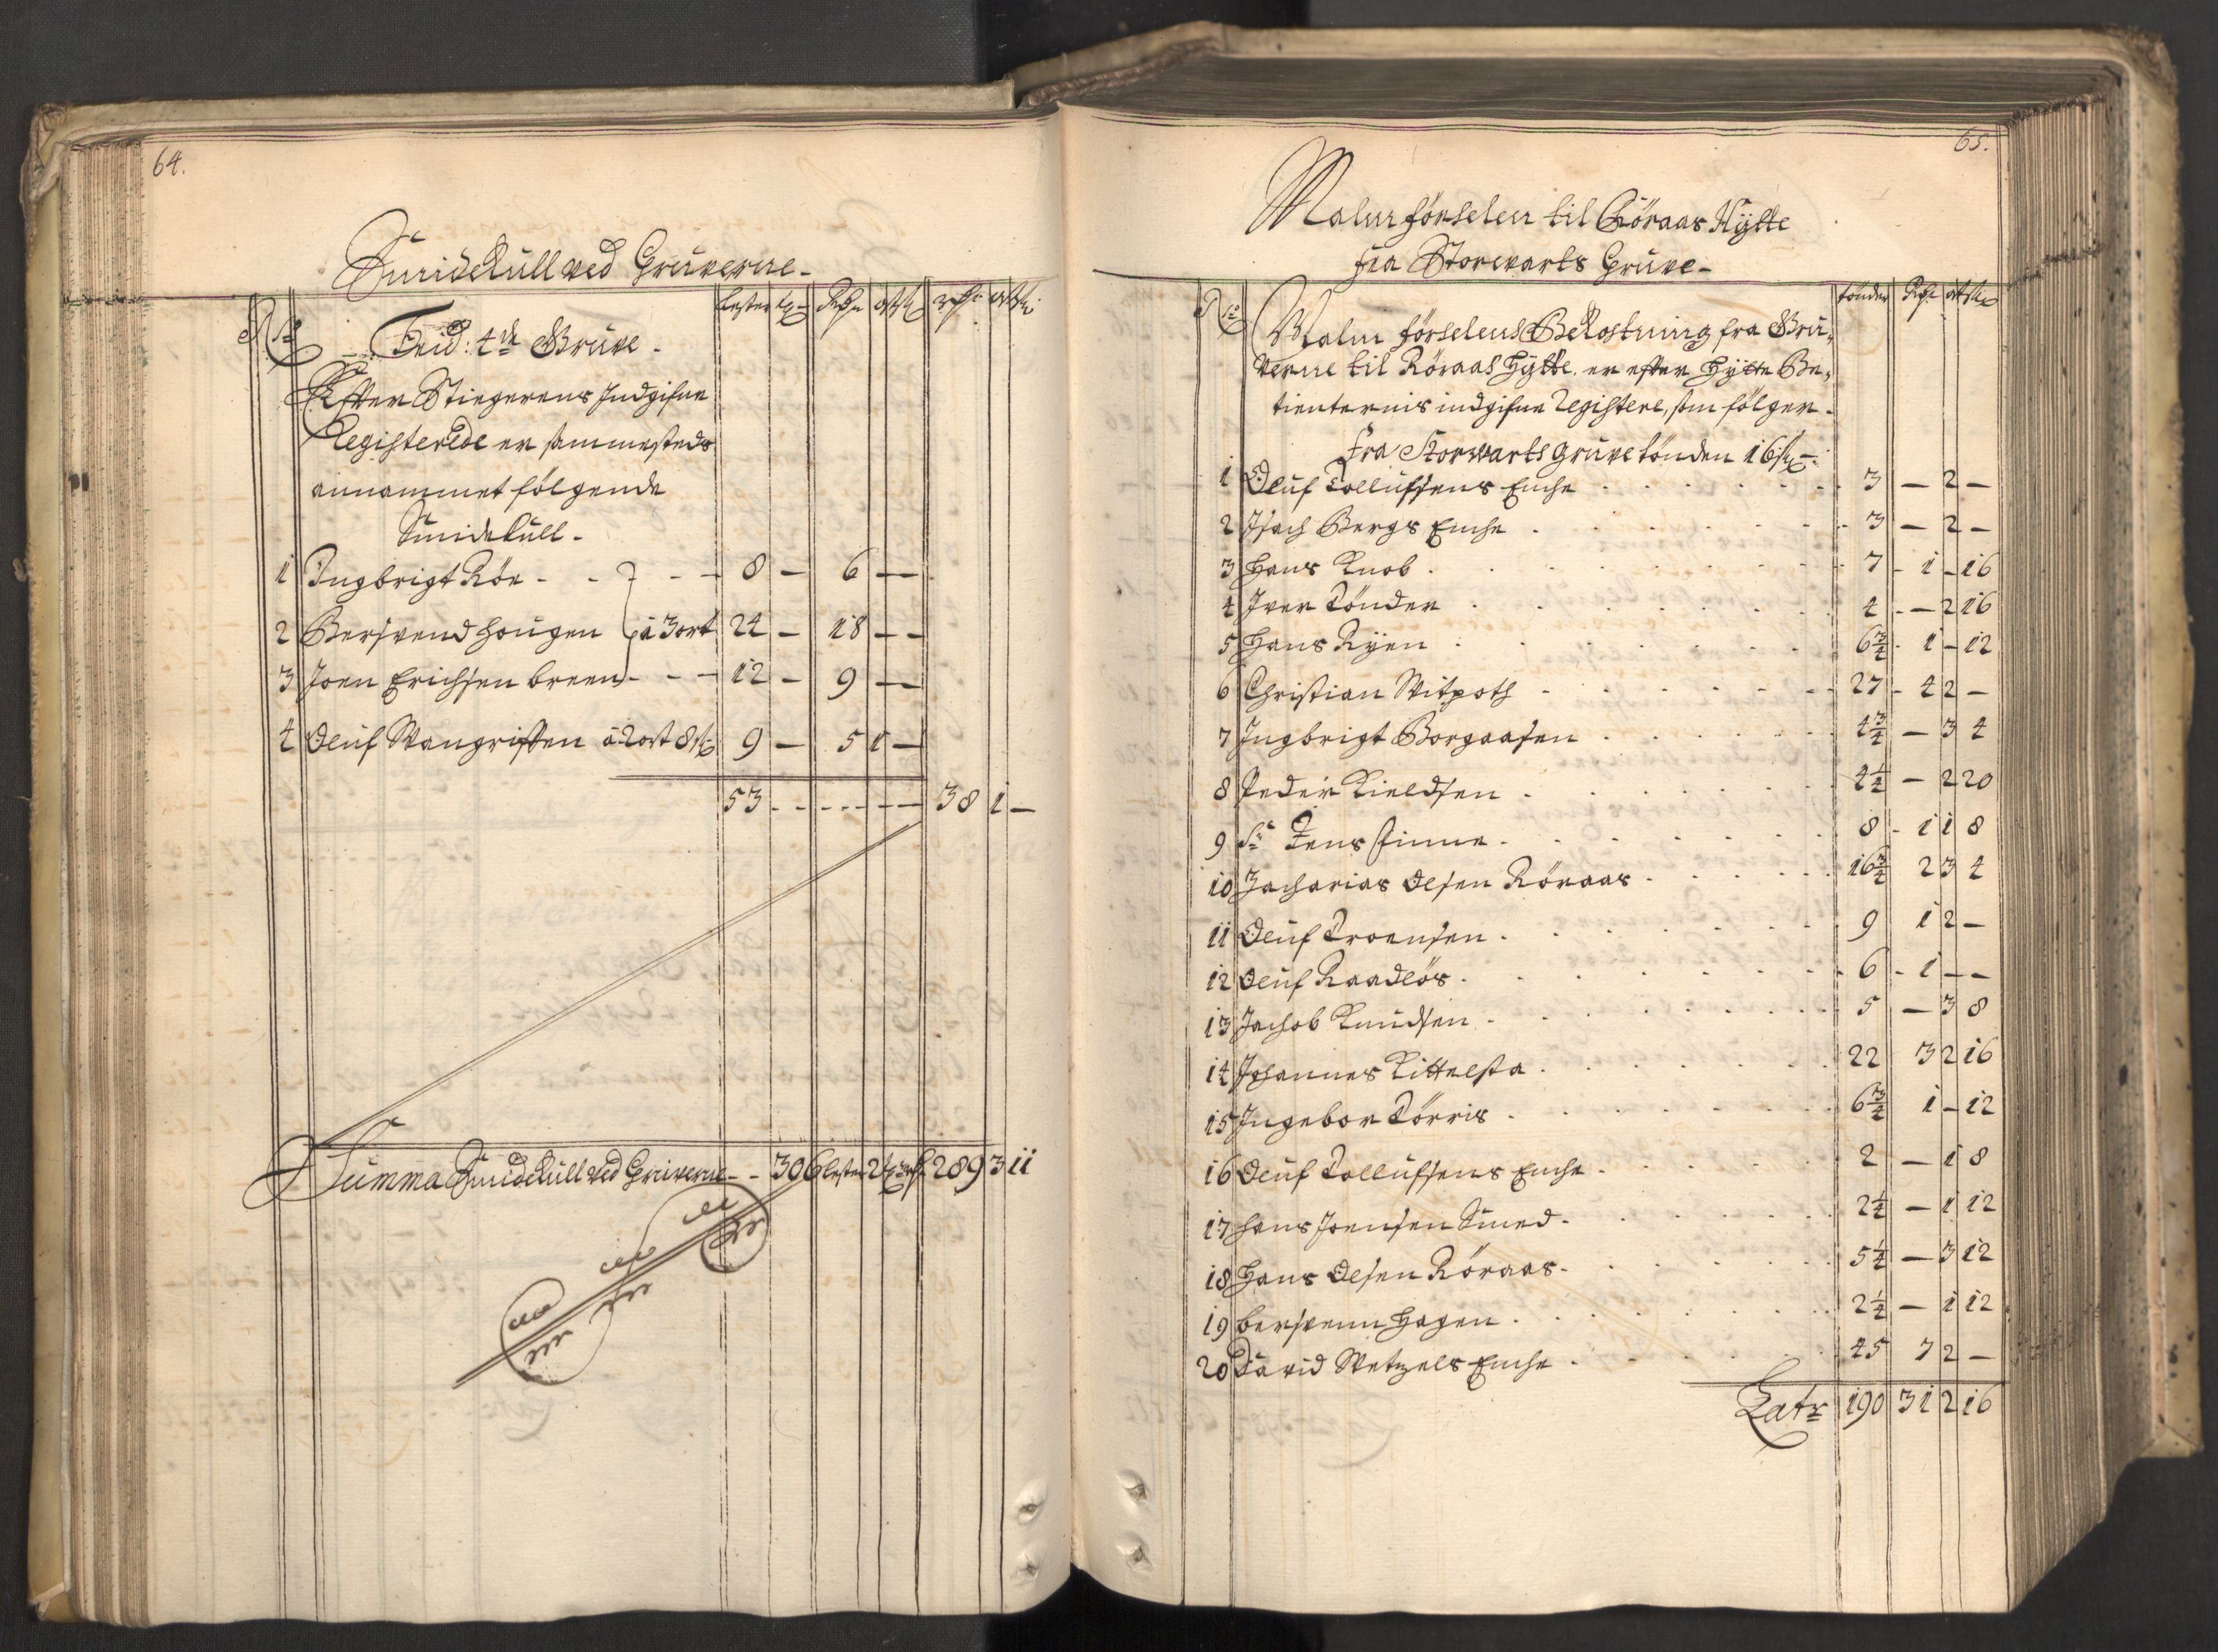 64.
Smidekull ved Gruverne -
Lester
Frid: 4de Gruve -
Effter Stiegerens Indgifne
Registere er sammesteds
annammet følgende
Smidekull -
1 Ingbrigt Röe - - 8 - 6 - -
2 Bersvend Hougen à 3 ort 24 - 18 - -
3 Joen Erichsen breen - - 12 - 9 - -
4 Oluf Wangrissen à 2 ort 8 s 9 - 5 1 -
53 - - - - - 38 1 -
Summa Smidekull ved Gruverne - - 306 Lester 2 289 3 11
65.
Malm förselen til Röraas Hÿtte
fra Storwarts Gruve -
tönder
Malm förselens Bekostning fra Gru-
verne til Röraas Hÿtte er efter Hÿtte Be-
tienternis indgifne Registere, som fölger -
Fra Storwarts gruve tönden 16 s -
1 Oluf Tollufsens Enche 3 - 2 -
2 Isach Bergs Enche 3 - 2 -
3 Hans Knob 7 - 1 - 16
4 Iver Tönder 4 - - 2 16
5 Hans Rÿen 6 3/4 - 1 - 12
6 Christian Witpoth 27 - 4 2 -
7 Ingbrigt Borgaasen 4 3/4 - 3 4
8 Peder Kieldsen 4 1/4 - 2 20
9 Sr Jens Finne 8 - 1 1 8
10 Zacharias Olsen Röraas 16 3/4 2 3 4
11 Oluf Troensen 9 1 2 -
12 Oluf Raadlös 6 - 1 - -
13 Jachob Knudsen 5 - 3 8
14 Johannes Kittelsta 22 3 2 16
15 Ingebor Törris 6 3/4 1 - 12
16 Oluf Tollufsens Enche 2 - 1 8
17 Hans Joensen Smed 2 1/4 - 1 12
18 Hans Olsen Röraas 5 1/4 - 3 12
19 bersvenn Hagen 2 1/4 - 1 12
20 David Wetzels Enche 45 7 2 -
Latr 190 31 2 16